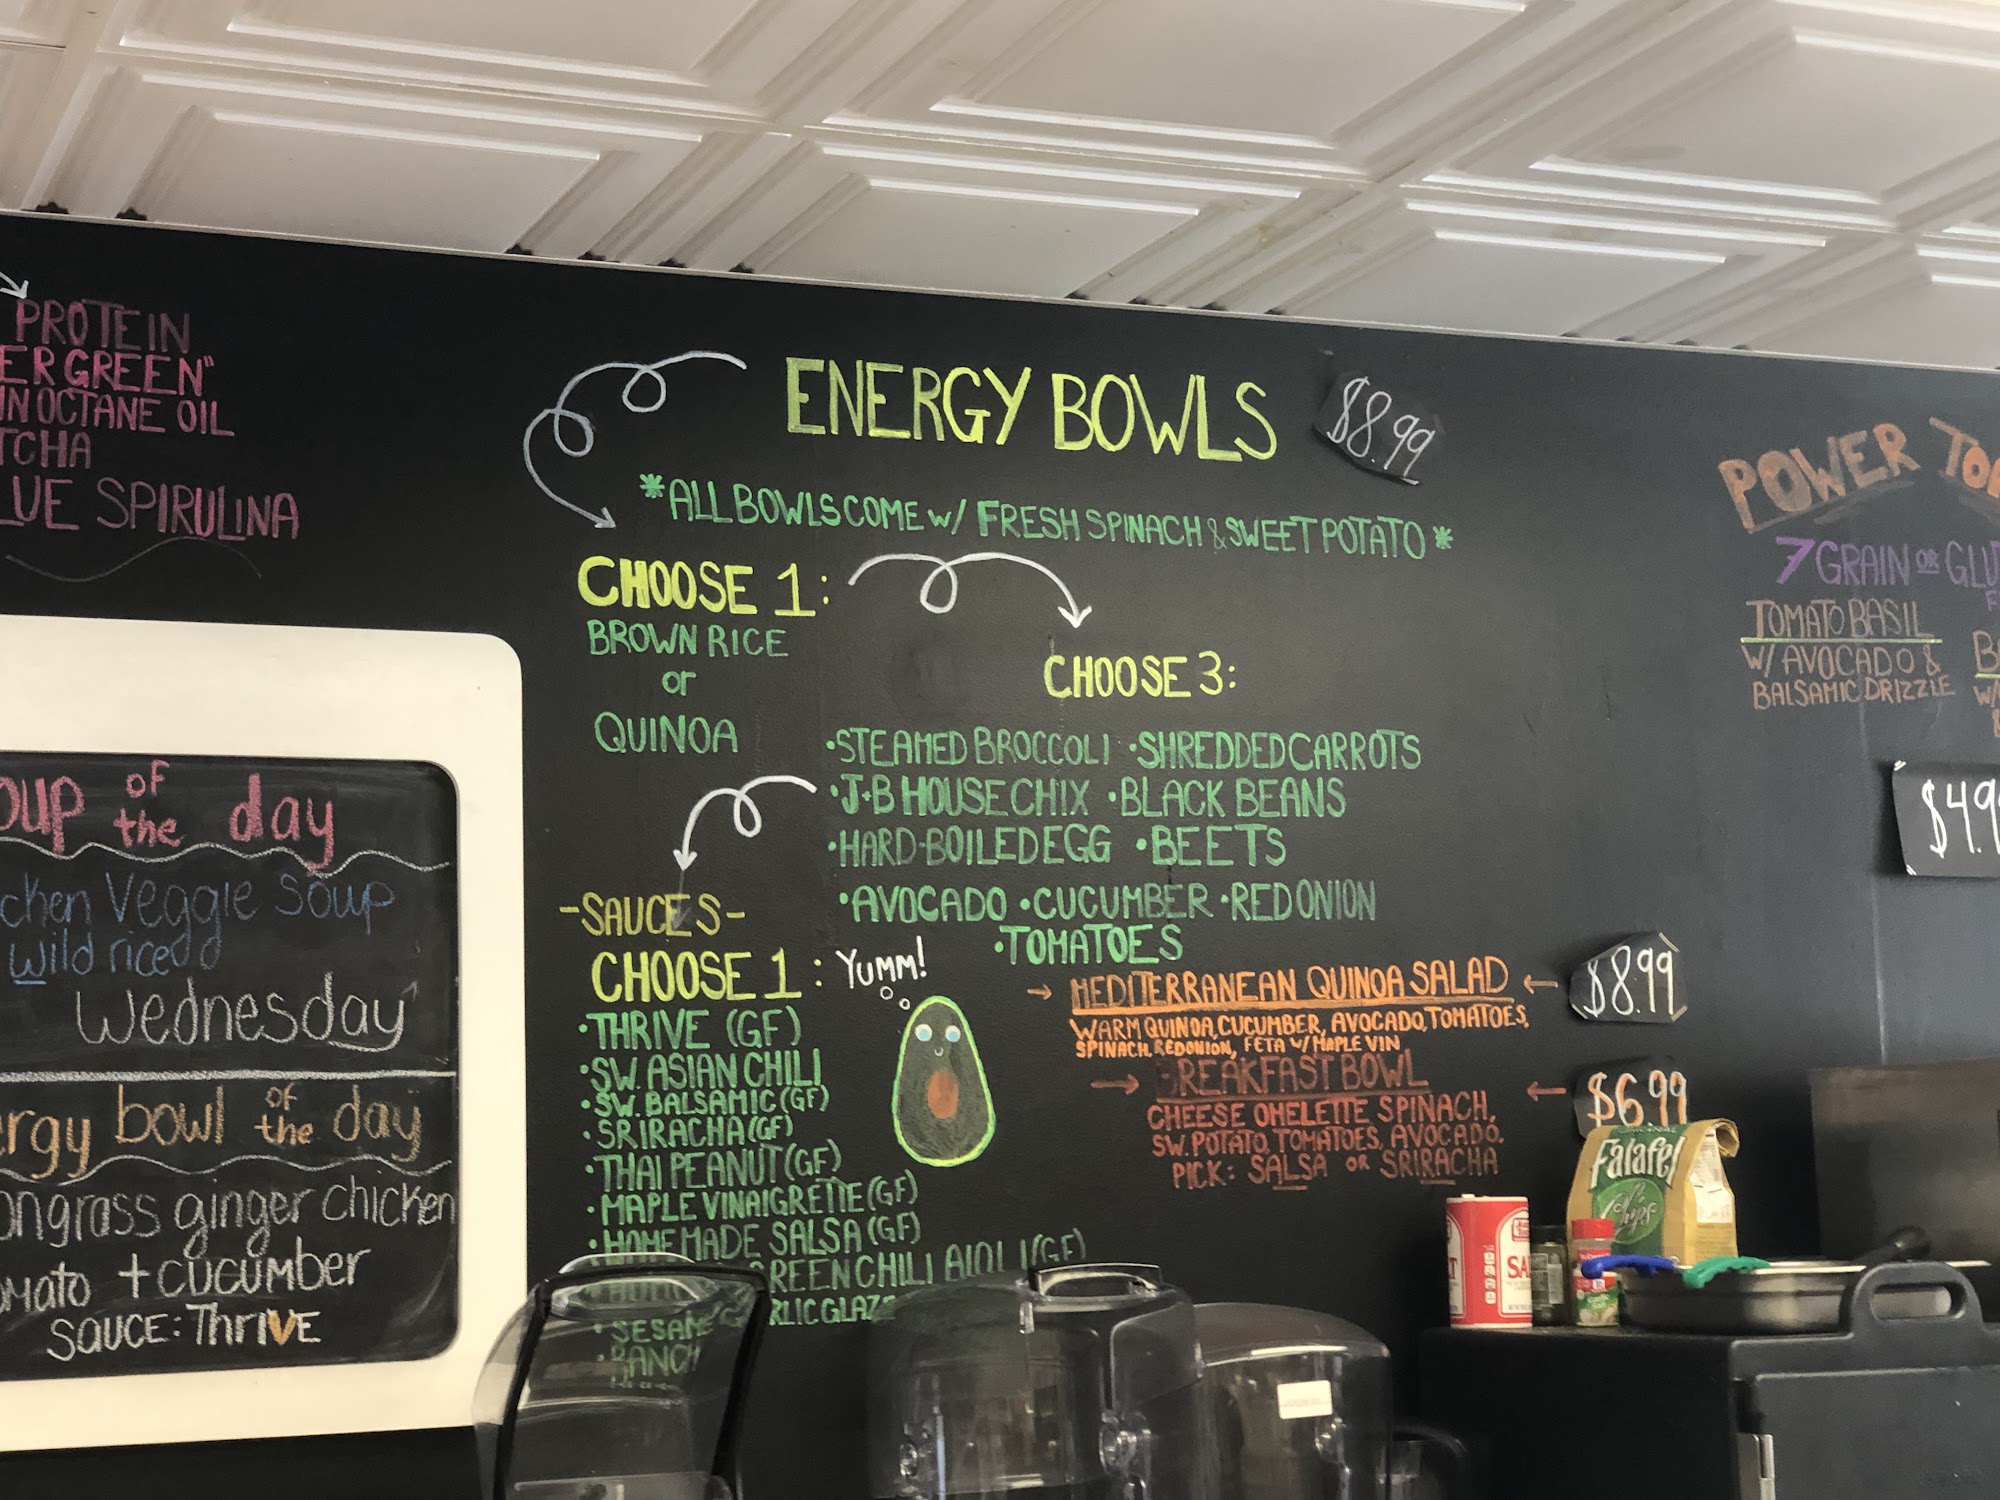 PROTEIN
GREEN"
OCTANE OIL
SPIRULINA
of
the day
Veggie Soup
wild rice
Wednesday
bowl of
the day
ginger chicken
+ cucumber
SAUCE: ThriVE
ENERGY BOWLS $8.99
*ALL BOWLS COME W/ FRESH SPINACH & SWEET POTATO*
CHOOSE 1:
BROWN RICE
or
QUINOA
CHOOSE 3:
•STEAMED BROCCOLI •SHREDDED CARROTS
•J+B HOUSE CHIX •BLACK BEANS
•HARD-BOILED EGG •BEETS
•AVOCADO •CUCUMBER •RED ONION
•TOMATOES
-SAUCES-
CHOOSE 1:
•THRIVE (GF)
•SW. ASIAN CHILI
•SW. BALSAMIC (GF)
•SRIRACHA (GF)
•THAI PEANUT (GF)
•MAPLE VINAIGRETTE (GF)
•HOMEMADE SALSA (GF)
GREEN CHILI AIOLI (GF)
GLAZE
•RANCH
YUMM!
MEDITERRANEAN QUINOA SALAD $8.99
WARM QUINOA, CUCUMBER, AVOCADO, TOMATOES,
SPINACH, RED ONION, FETA W/ MAPLE VIN
BREAKFAST BOWL $6.99
CHEESE OMELETTE SPINACH,
SW. POTATO, TOMATOES, AVOCADO.
PICK: SALSA OR SRIRACHA
POWER
7 GRAIN OR
TOMATO BASIL
W/ AVOCADO &
BALSAMIC DRIZZLE
Falafel
Chips